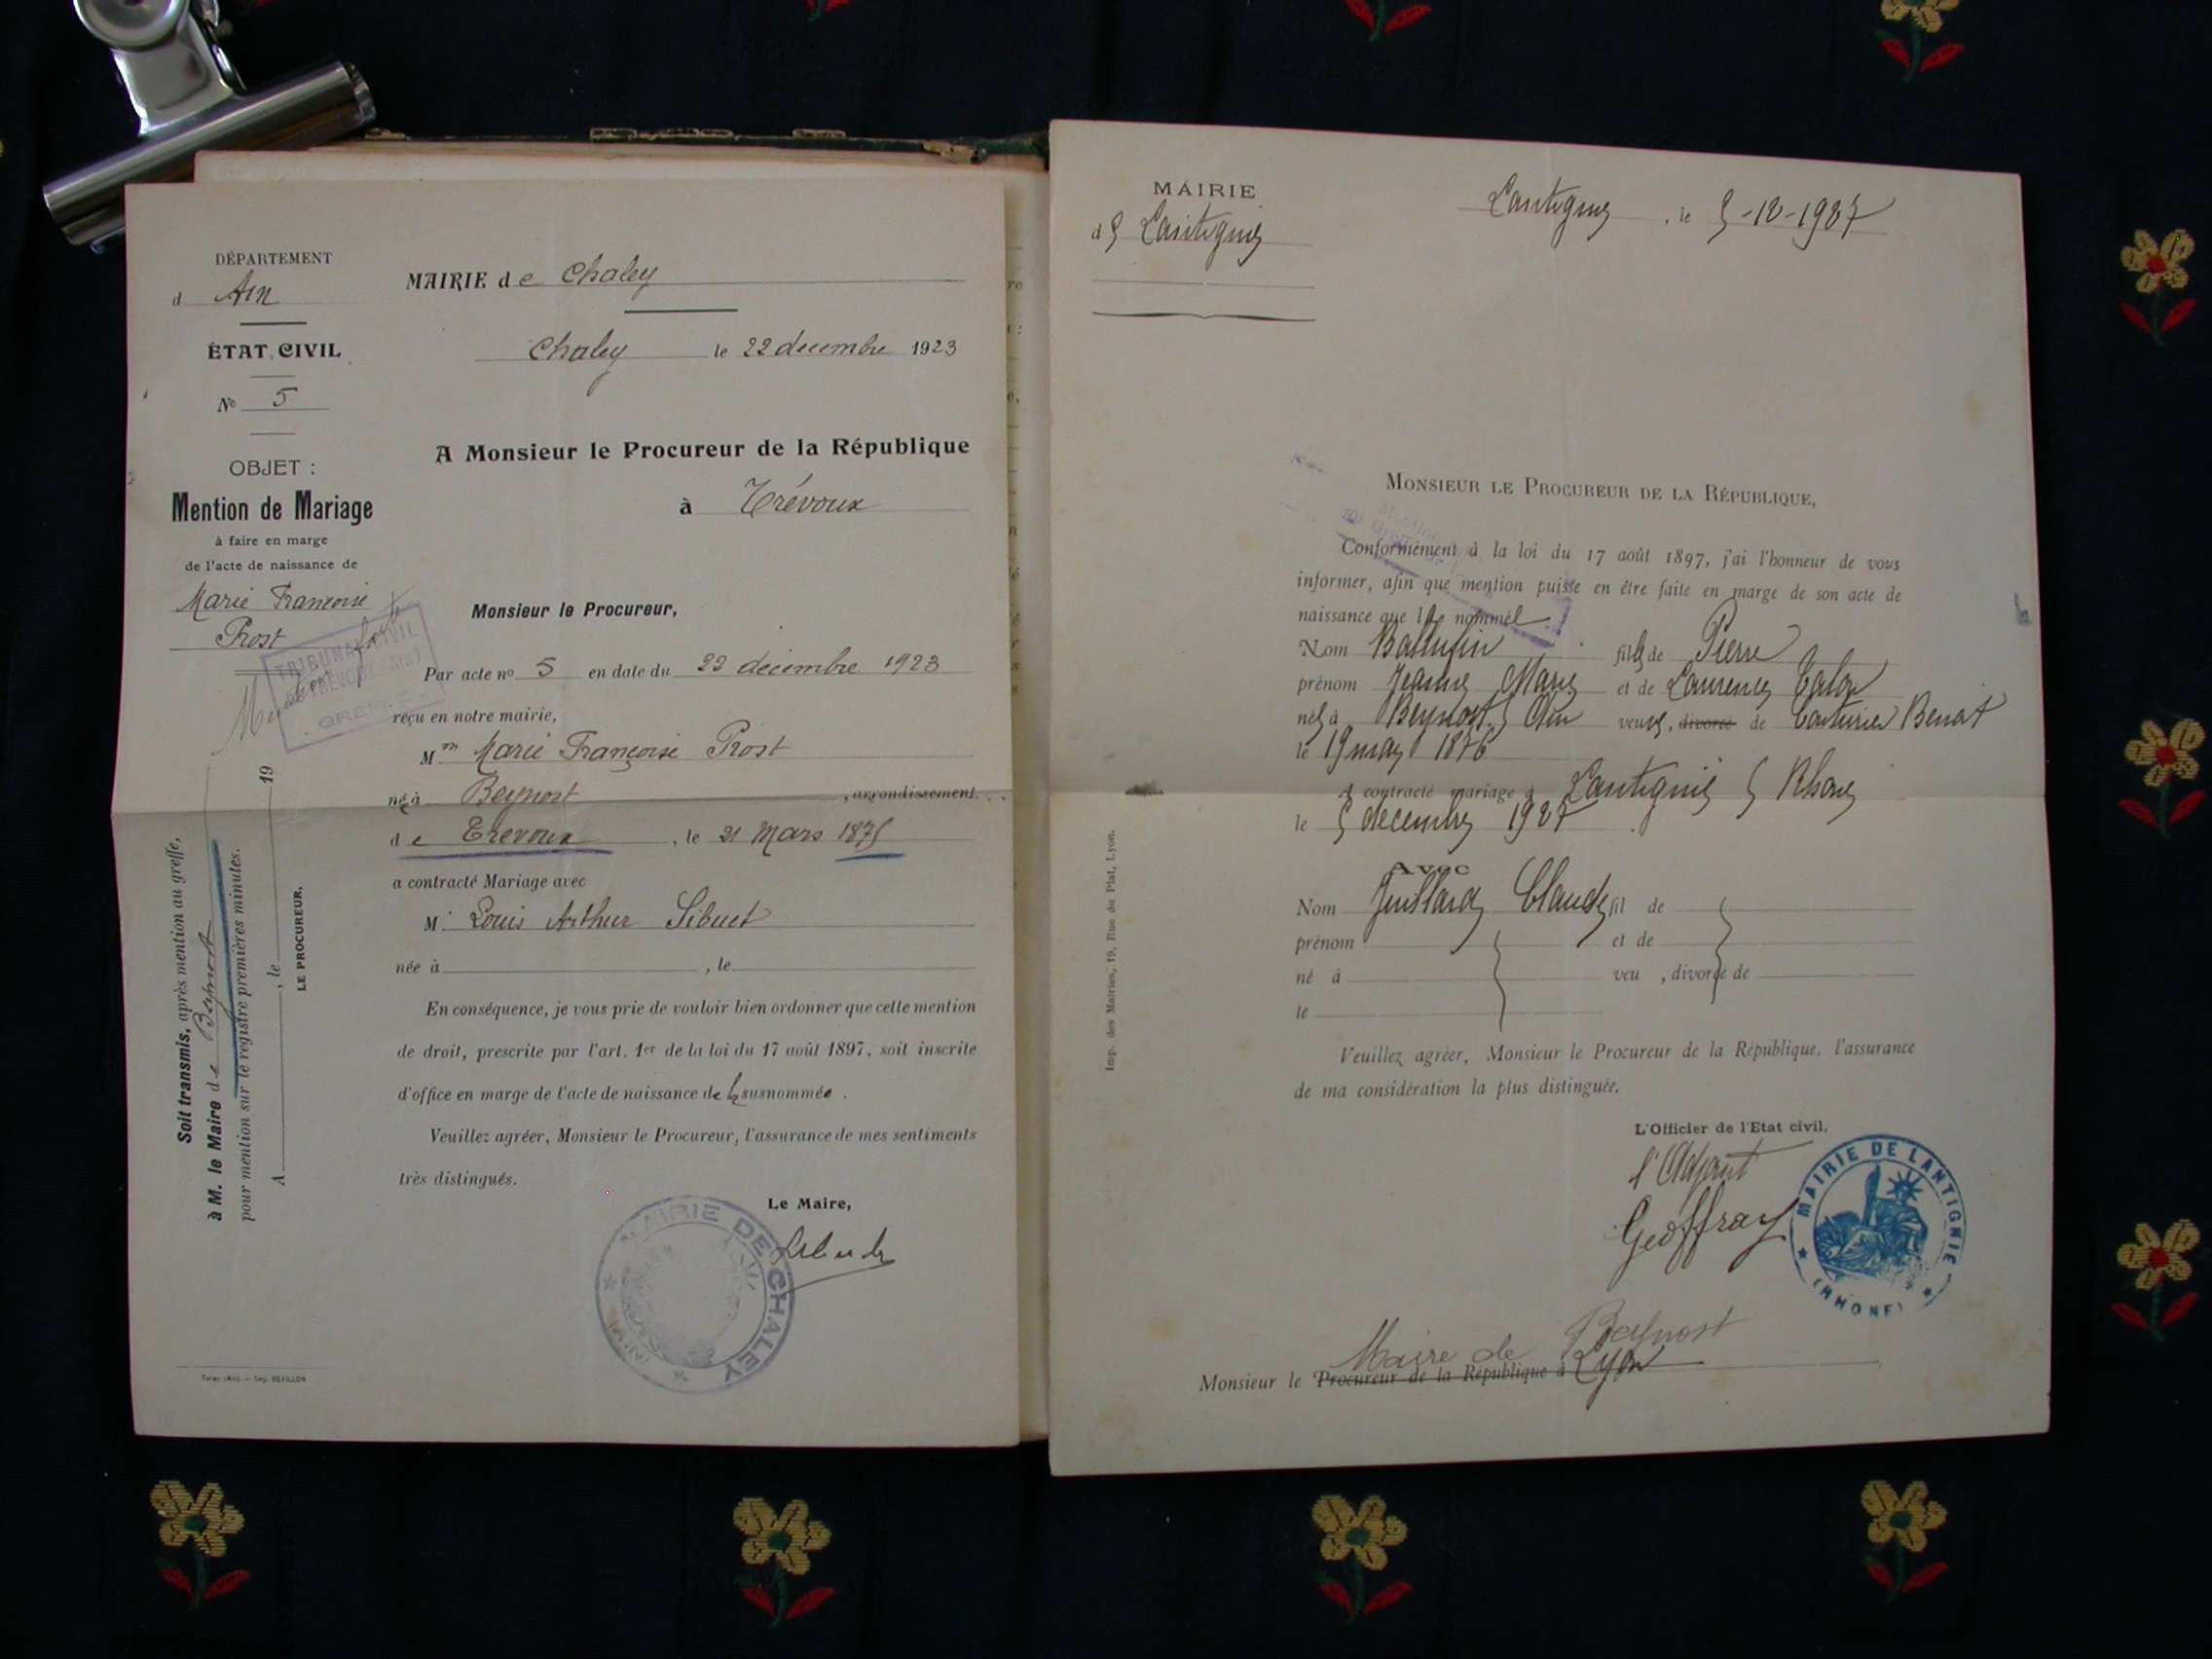 DÉPARTEMENT
d Ain
ÉTAT CIVIL
No 5
OBJET :
Mention de Mariage
à faire en marge
de l'acte de naissance de
Marie Françoise
Prost
TRIBUNAL CIVIL
DE TRÉVOUX (AIN)
GREFFE
MAIRIE de Chaley
Chaley le 22 decembre 1923
A Monsieur le Procureur de la République
à Trévoux
Monsieur le Procureur,
Par acte no 5 en date du 22 décembre 1923
reçu en notre mairie,
Mm Marie Françoise Prost
né à Beynost , arrondissement
de Trevoux , le 21 Mars 1875
a contracté Mariage avec
M. Louis Arthur Sibuet
née à , le
En conséquence, je vous prie de vouloir bien ordonner que cette mention
de droit, prescrite par l'art. 1er de la loi du 17 août 1897, soit inscrite
d'office en marge de l'acte de naissance de la susnommée .
Veuillez agréer, Monsieur le Procureur, l'assurance de mes sentiments
très distingués.
Le Maire,
MAIRIE DE CHALEY
(AIN)
Soit transmis, après mention au greffe,
à M. le Maire de Beynost
pour mention sur le registre premières minutes.
A , le 19
LE PROCUREUR.
MAIRIE
de Lantignié
Lantignié , le 5-12-1927
MONSIEUR LE PROCUREUR DE LA RÉPUBLIQUE,
Conformément à la loi du 17 août 1897, j'ai l'honneur de vous
informer, afin que mention puisse en être faite en marge de son acte de
naissance que la nommée
Nom fille de Pierre
prénom Jeanne Marie et de Laurence
née à Beynost Ain veuve, divorcé de Couturier Benoit
le 19 mai 1876
A contracté mariage à Lantignié Rhone
le 5 décembre 1927
Avec
Nom Juillard Claude fil de
prénom et de
né à veu , divorcé de
le
Veuillez agréer, Monsieur le Procureur de la République, l'assurance
de ma considération la plus distinguée.
L'Officier de l'Etat civil,
l'Adjoint
Geoffray
MAIRIE DE LANTIGNIÉ
(RHONE)
Maire de Beynost
Monsieur le Procureur de la République à Lyon
Imp. des Mairies, 19, Rue du Plat, Lyon.